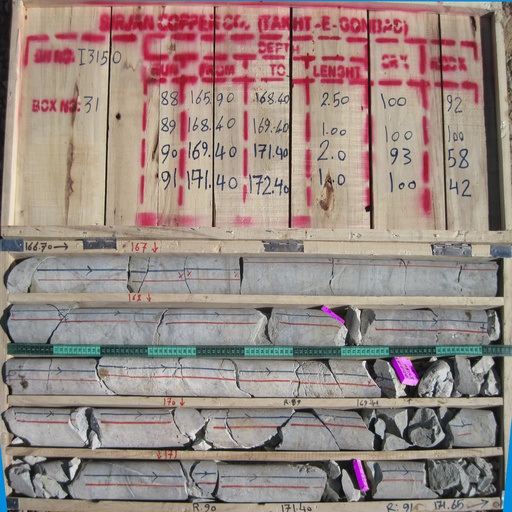 SIRJAN COPPER CO. (TAKHT-E-GONBAD)
BH NO: I3150
DEPTH
RUN FROM TO LENGHT
BOX NO: 31
88 165.90 168.40 2.50 100 92
89 168.40 169.40 1.00 100 100
90 169.40 171.40 2.0 93 58
91 171.40 172.40 1.0 100 42
166.70 → 167 ↓
168 ↓
170 ↓ R.89 169.40
171
R.90 171.40 R.91 171.65 →